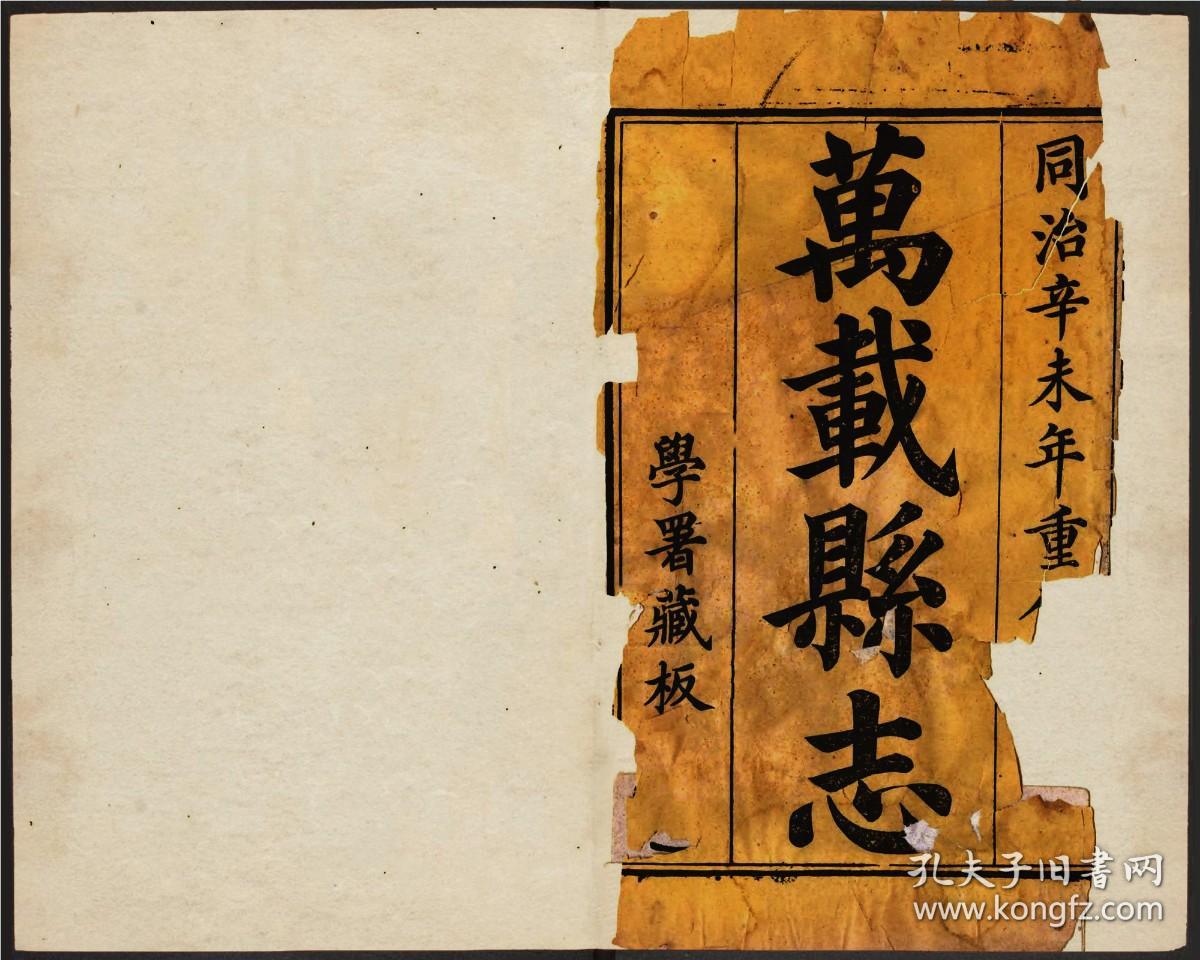 同治辛未年重
萬載縣志
學署藏板
孔夫子旧书网
www.kongfz.com